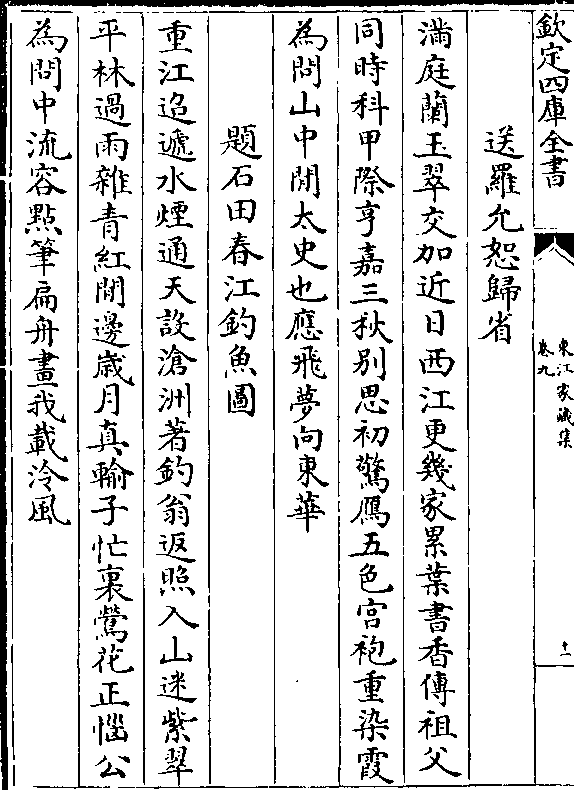 欽定四庫全書
東江家藏集
卷九
十一
送羅允恕歸省
滿庭蘭玉翠交加近日西江更幾家累葉書香傳祖父
同時科甲際亨嘉三秋別思初驚鴈五色宮袍重染霞
為問山中閒太史也應飛夢向東華
題石田春江釣魚圖
重江迢遞水煙通天設滄洲著釣翁返照入山迷紫翠
平林過雨雜青紅閒邊歲月真輸子忙裏鶯花正惱公
為問中流容點筆扁舟畫我載泠風